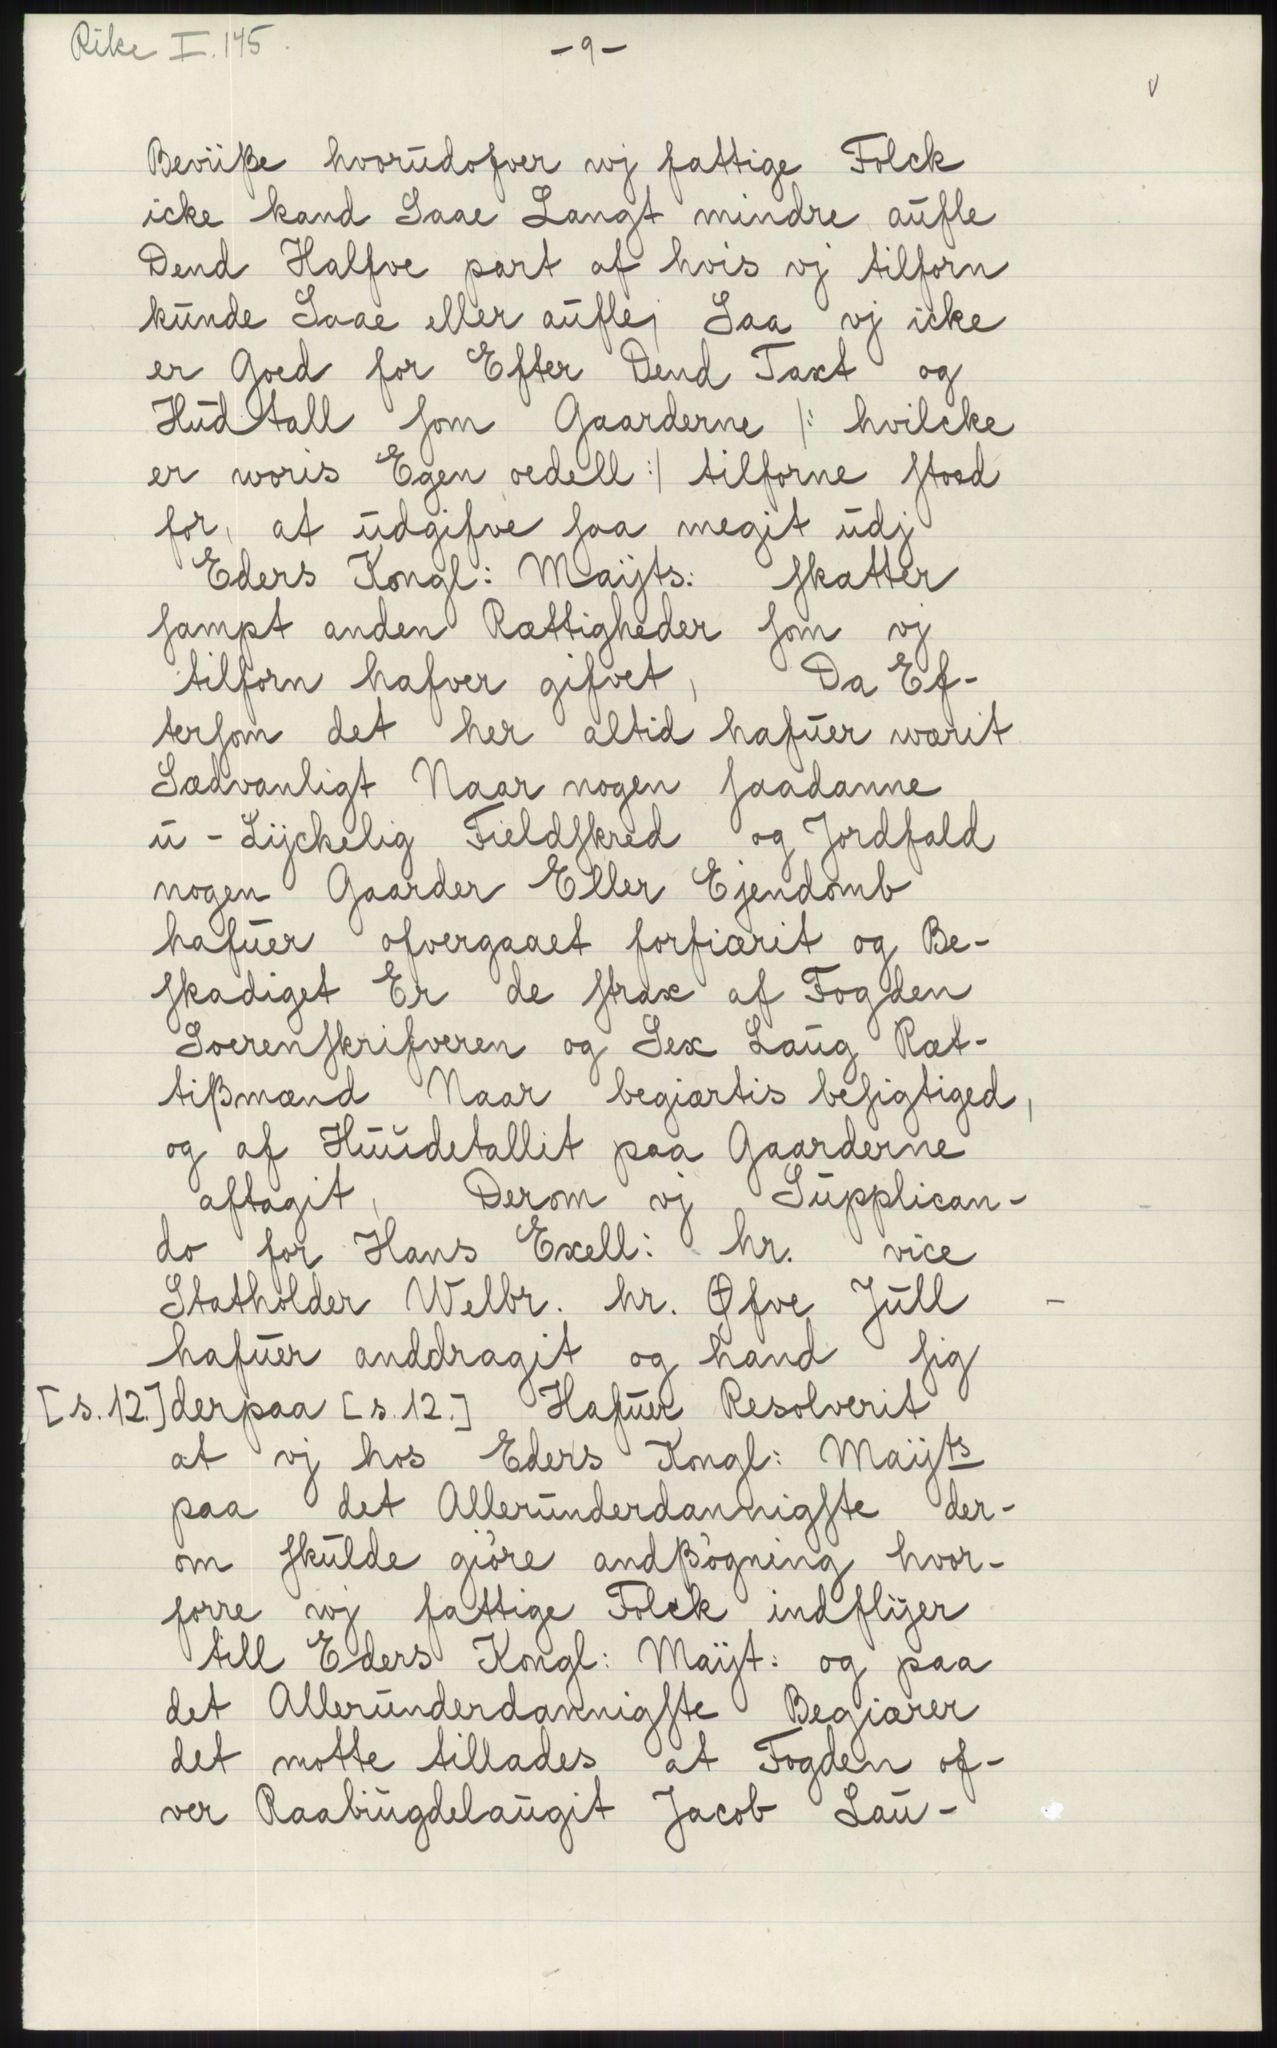 Rike I. 145.
- 9 -
v
Beviiße hvorudofver wj fattige Folck
icke kand Saae Langt mindre aufle
Dend Halfve part af hvis vj tilforn
kunde Saae eller aufle; Saa vj icke
er Goed for Efter Dend Taxt og
Hudtall som Gaarderne /: hvilcke
er woris Egen oedell :/ tilforne stoed
for, at udgifve saa megit udj
Eders Kongl: Maijts: skatter
sampt anden Rættigheder som vj
tilforn hafver gifvet, Da Ef-
tersom det her altid hafuer wærit
Sædvanligt Naar nogen saadanne
u-Lÿckelig Fieldskred og Jordfald
nogen Gaarder Eller Ejendomb
hafuer ofvergaaet forfiærit og Be-
skadiget Er de strax af Fogden
Soerenskrifveren og Sex Laug Ræt-
tißmænd Naar begiærtis besigtiged,
og af Huudetallit paa Gaarderne
aftagit, Derom vj Supplican-
do for Hans Exell: hr. vice
Statholder Welbr. hr. Øfve Jull -
hafuer anddragit og hand sig
[s. 12.] derpaa [s. 12.] Hafuer Resolverit
at vj hos Eders Kongl: Maijts
paa det Allerunderdannigste der-
om skulde giöre andßögning hvor-
forre wj fattige Folck indflÿer
till Eders Kongl: Maijt: og paa
det Allerunderdannigste Begiærer
det motte tillades at Fogden of-
ver Raabiugdelaugit Jacob Lau-